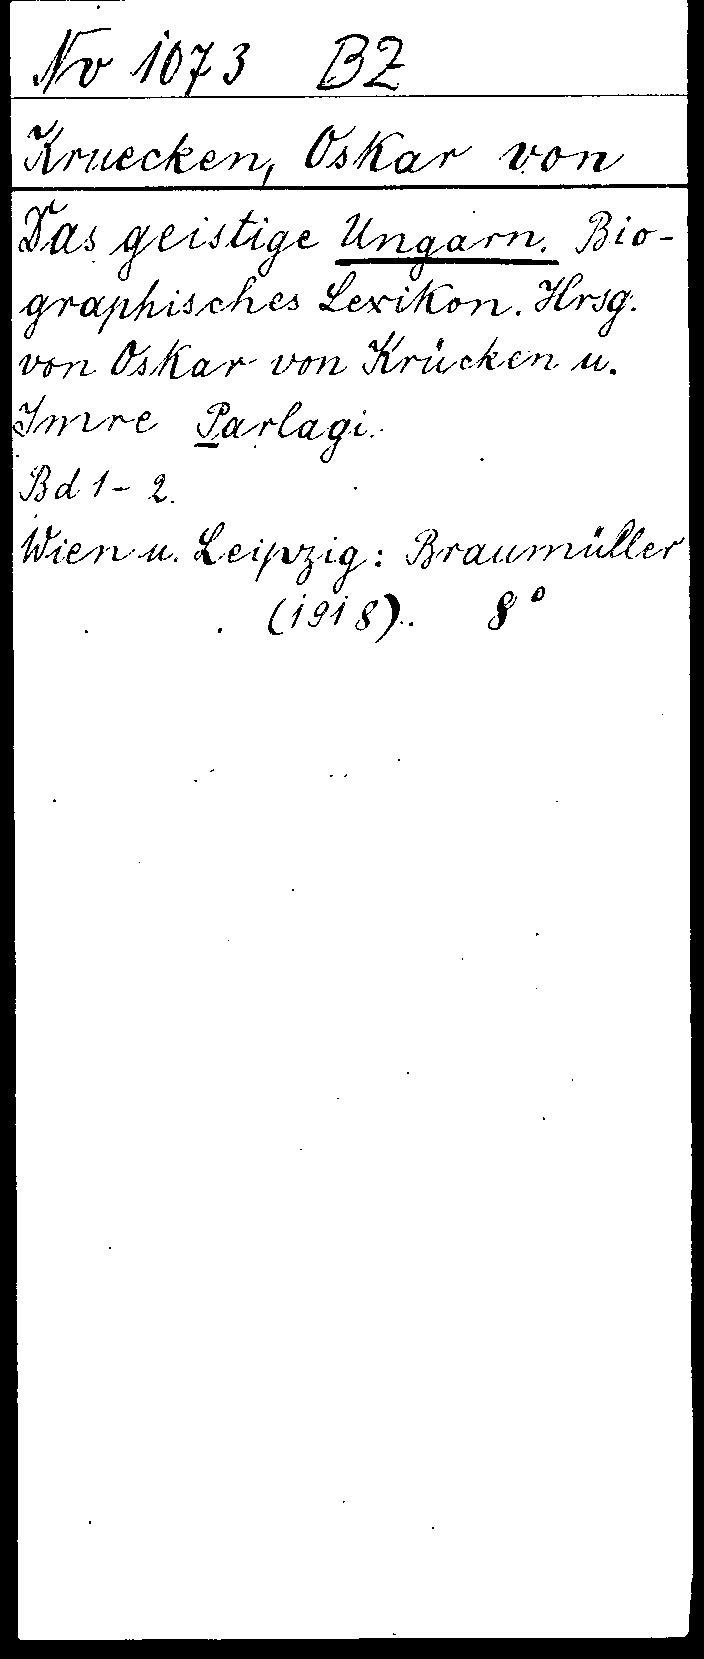 Nv 1073 BZ
Kruecken, Oskar von
Das geistige Ungarn. Bio-
graphisches Lexikon. Hrsg.
von Oskar von Krücken u.
Imre Parlagi.
Bd 1-2.
Wien u. Leipzig: Braumüller
(1918). 8°